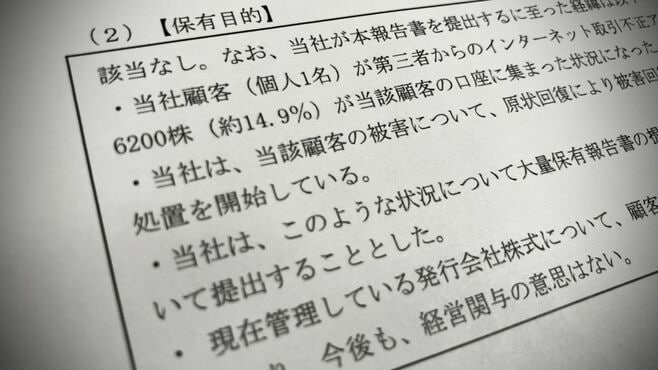 （2）【保有目的】
該当なし。なお、当社が本報告書を提出するに至った経緯は以
・当社顧客（個人1名）が第三者からのインターネット取引不正ア
6200株（約14.9%）が当該顧客の口座に集まった状況になった
・当社は、当該顧客の被害について、原状回復により被害回
処置を開始している。
・当社は、このような状況について大量保有報告書の提
いて提出することとした。
・現在管理している発行会社株式について、顧客
り、今後も、経営関与の意思はない。